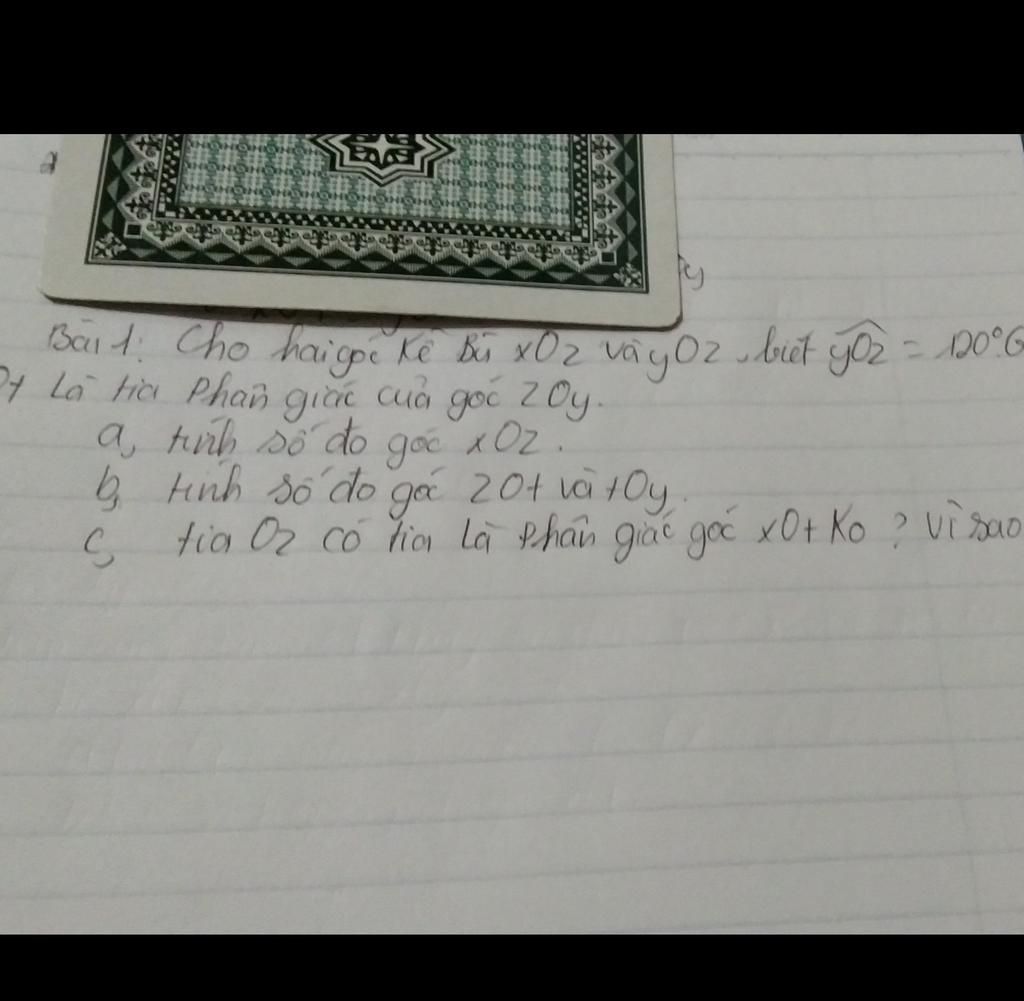 y
Bài 1: Cho hai góc kề Bù xOz và yOz, biết yOz = 120°. G
Ot Là tia Phân giác của góc zOy.
a, tính số đo góc xOz.
b, tính số đo góc zOt và tOy.
c, tia Oz có tia Là Phân giác góc xOt Ko? Vì sao